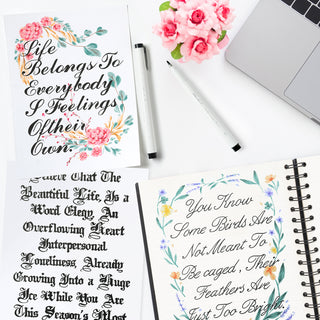 Life
Belongs To
Everybody
S Feelings
Of Their
Own.
Believe That The
Beautiful Life, Is a
Word Elegy, An
Overflowing Heart
Interpersonal
Loneliness, Already
Growing Into a Huge
Ice While You Are
This Season's Most
You Know
Some Birds Are
Not Meant To
Be caged, Their
Feathers Are
Just Too Bright.